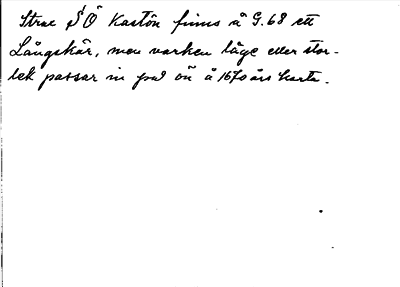 Strax SÖ Kastön finns å G.68 ett
Långskär, men varken läge eller stor-
lek passar in på ön å 1670 års karta.